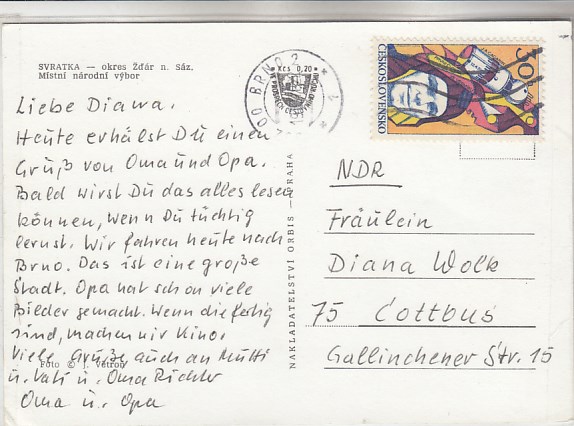 SVRATKA — okres Žďár n. Sáz.
Místní národní výbor
Liebe Diana,
Heute erhälst Du einen
Gruß von Oma und Opa.
Bald wirst Du das alles lesen
können, wenn Du tüchtig
lernst. Wir fahren heute nach
Brno. Das ist eine große
Stadt. Opa hat schon viele
Bilder gemacht. Wenn die fertig
sind, machen wir Kino.
Viele Grüße auch an Mutti
u. Vati u. Oma Richter
Oma u. Opa
Foto © J. Větrov
NAKLADATELSTVÍ ORBIS — PRAHA
BRNO 2
Kčs 0,20
ČESKOSLOVENSKO
30h
NDR
Fräulein
Diana Wolk
75 Cottbus
Gallinchener Str. 15